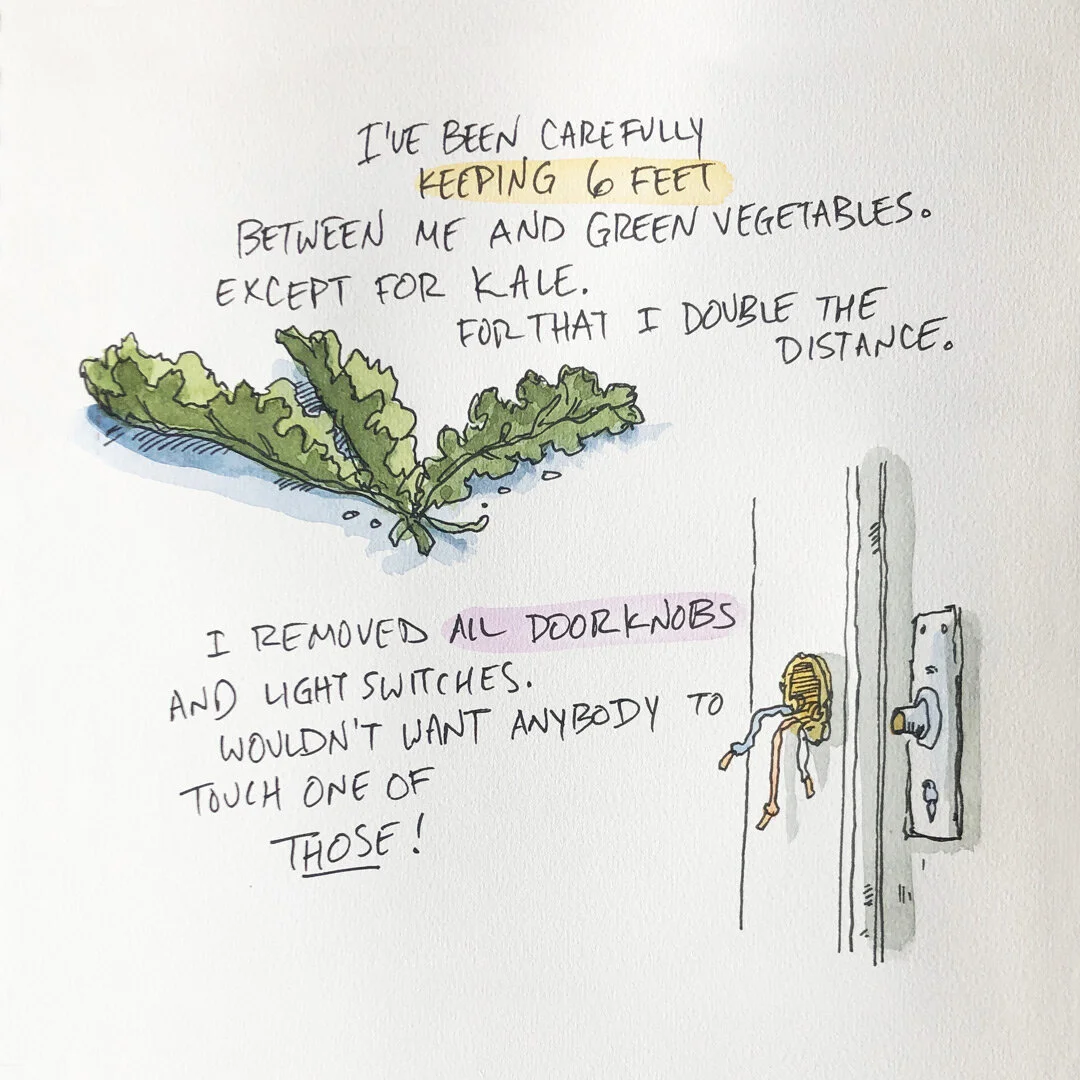 I'VE BEEN CAREFULLY
KEEPING 6 FEET
BETWEEN ME AND GREEN VEGETABLES.
EXCEPT FOR KALE.
FOR THAT I DOUBLE THE
DISTANCE.
I REMOVED ALL DOORKNOBS
AND LIGHT SWITCHES.
WOULDN'T WANT ANYBODY TO
TOUCH ONE OF
THOSE!